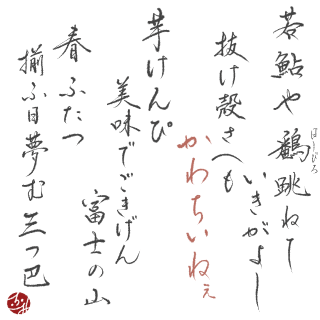 若鮎や鸛跳ねて
はしびろ
いきがよし
抜け殻さへも
かわちいねぇ
芋けんぴ
美味でごきげん
富士の山
春ふたつ
揃ふ日夢む三つ巴